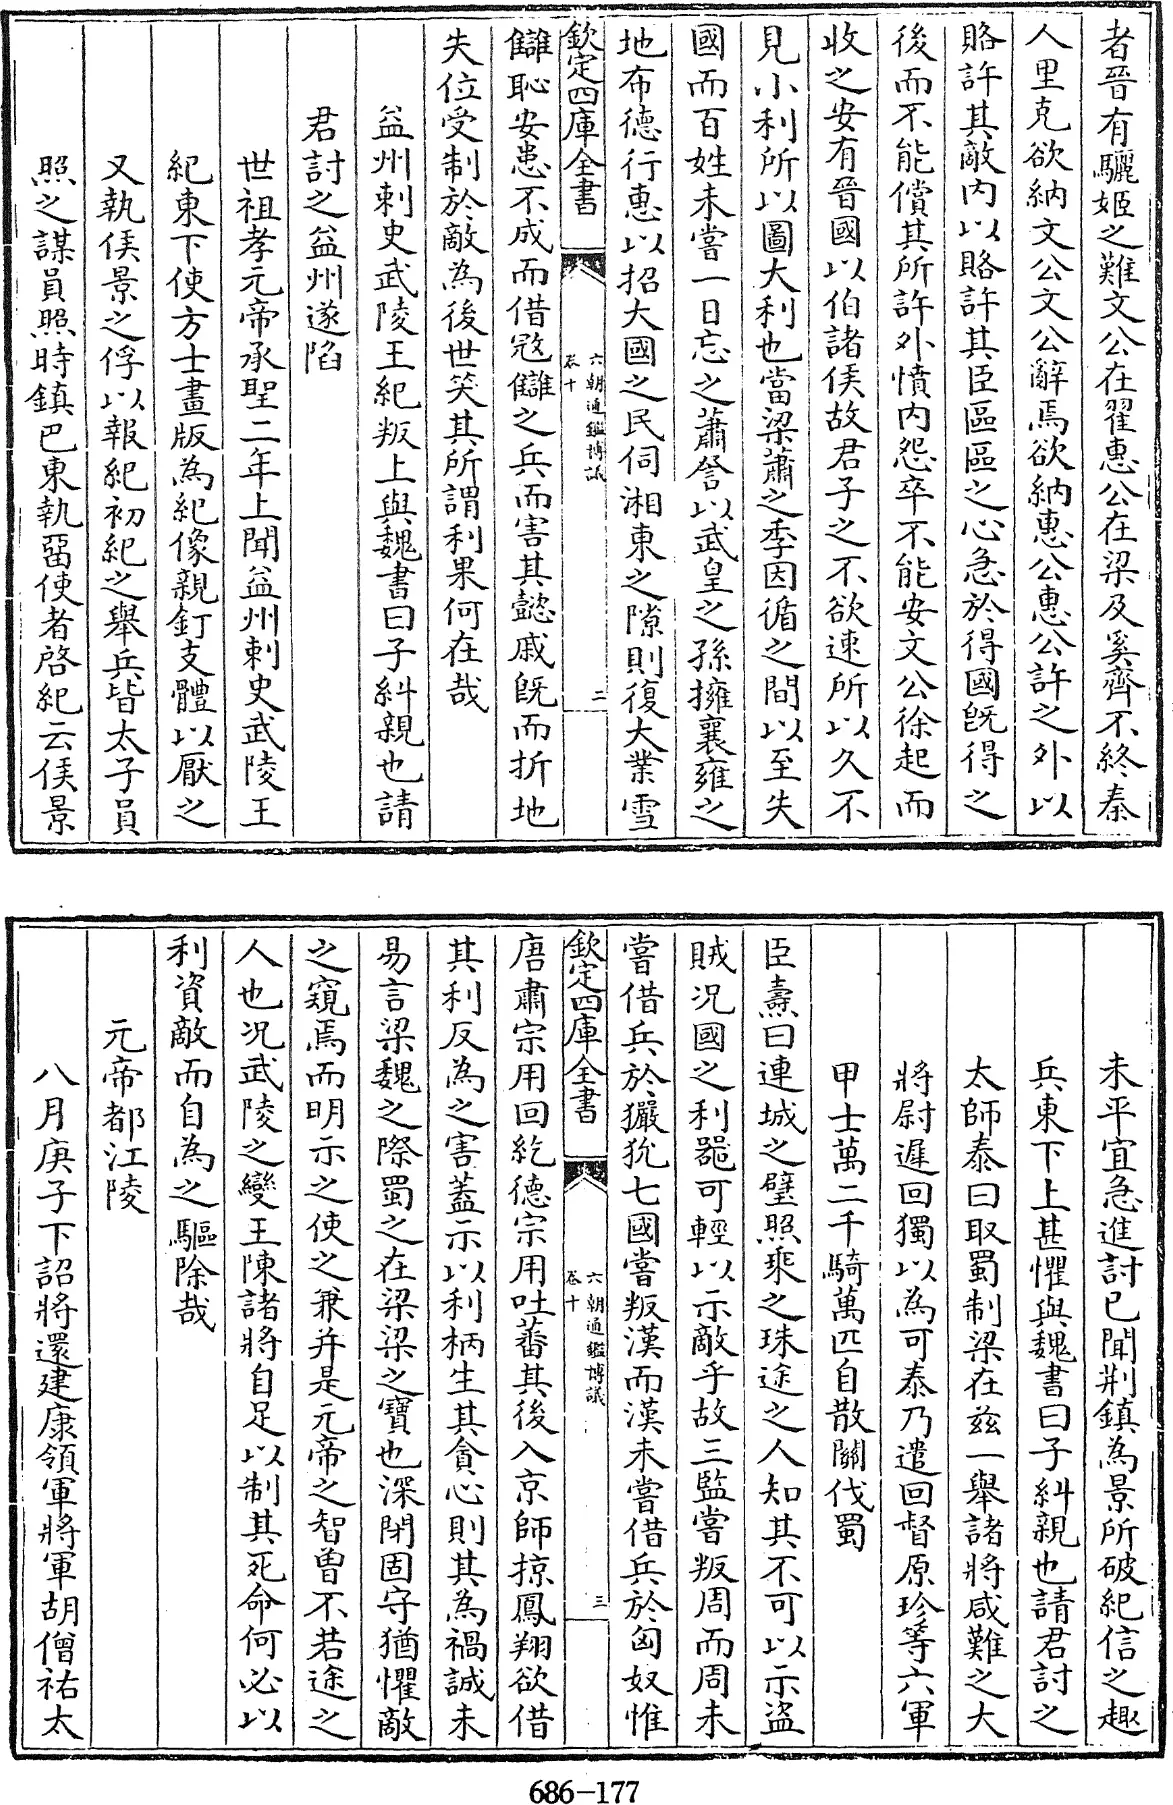 者晉有驪姬之難文公在翟惠公在梁及奚齊不終秦
人里克欲納文公文公辭焉欲納惠公惠公許之外以
賂許其敵内以賂許其臣區區之心急於得國既得之
後而不能償其所許外憤内怨卒不能安文公徐起而
收之安有晉國以伯諸侯故君子之不欲速所以久不
見小利所以圖大利也當梁蕭之季因循之間以至失
國而百姓未嘗一日忘之蕭詧以武皇之孫擁襄雍之
地布德行惠以招大國之民伺湘東之隙則復大業雪
欽定四庫全書
六朝通鑑博議
卷十
二
讎恥安患不成而借㓂讎之兵而害其懿戚既而折地
失位受制於敵為後世笑其所謂利果何在哉
益州刺史武陵王紀叛上與魏書曰子糾親也請
君討之益州遂陷
世祖孝元帝承聖二年上聞益州刺史武陵王
紀東下使方士畫版為紀像親釘支體以厭之
又執侯景之俘以報紀初紀之舉兵皆太子員
照之謀員照時鎮巴東執留使者啓紀云侯景
未平宜急進討已聞荆鎮為景所破紀信之趣
兵東下上甚懼與魏書曰子糾親也請君討之
太師泰曰取蜀制梁在兹一舉諸將咸難之大
將尉遲回獨以為可泰乃遣回督原珍等六軍
甲士萬二千騎萬匹自散關伐蜀
臣燾曰連城之璧照乘之珠途之人知其不可以示盗
賊况國之利噐可輕以示敵乎故三監嘗叛周而周未
嘗借兵於玁狁七國嘗叛漢而漢未嘗借兵於匈奴惟
欽定四庫全書
六朝通鑑博議
卷十
三
唐肅宗用回紇德宗用吐蕃其後入京師掠鳳翔欲借
其利反為之害蓋示以利柄生其貪心則其為禍誠未
易言梁魏之際蜀之在梁梁之寶也深閉固守猶懼敵
之窺焉而明示之使之兼并是元帝之智曾不若途之
人也况武陵之變王陳諸將自足以制其死命何必以
利資敵而自為之驅除哉
元帝都江陵
八月庚子下詔將還建康領軍將軍胡僧祐太
686-177